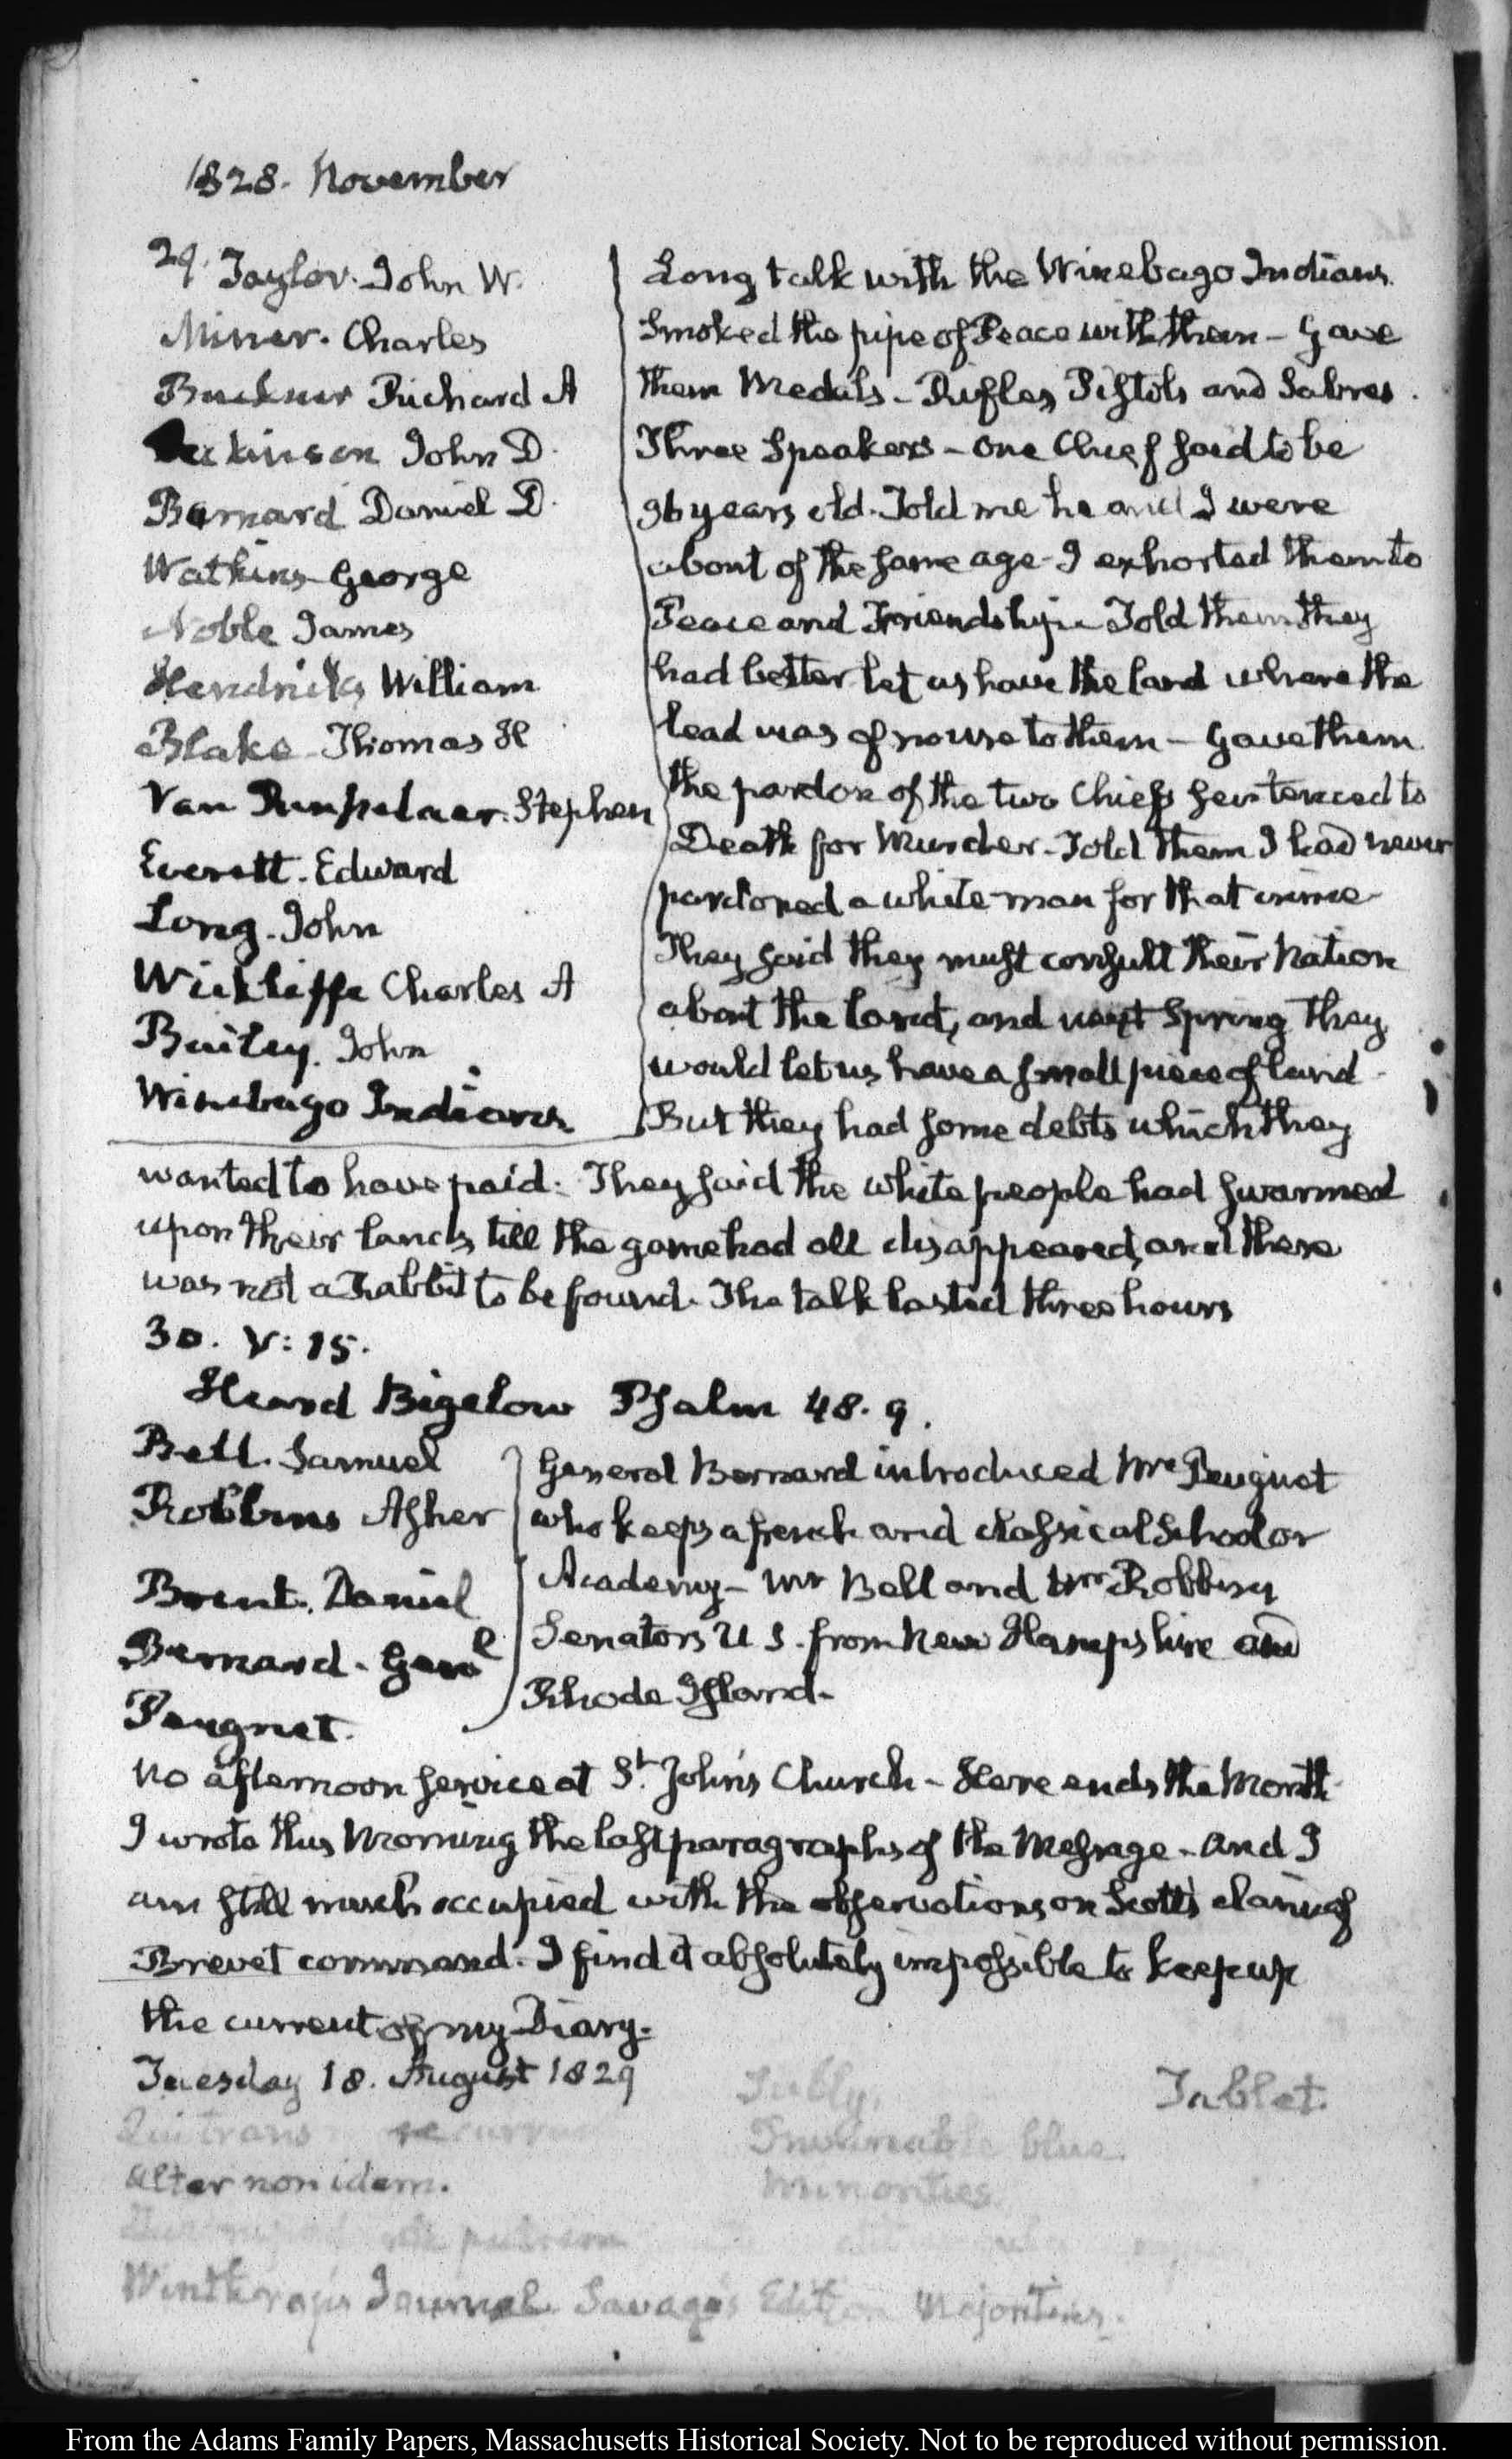 1828. November
29. Taylor. John W.
Miner. Charles
Buckner Richard A
Dickinson John D.
Barnard Daniel D.
Watkins George
Noble James
Hendricks William
Blake Thomas H
Van Rensselaer. Stephen
Everett. Edward
Long. John
Wickliffe Charles A
Bailey. John
Winebago Indians
Long talk with the Winebago Indians.
Smoked the pipe of Peace with them – Gave
them Medals – Rifles, Pistols and Sabres.
Three Speakers – One Chief said to be
96 years old. Told me he and I were
about of the same age – I exhorted them to
Peace and Friendship – Told them they
had better let us have the land where the
lead was of no use to them – Gave them
the pardon of the two Chiefs sentenced to
Death for Murder – Told them I had never
pardoned a white man for that crime –
They said they must consult their Nation
about the land, and next Spring they
would let us have a small piece of land –
But they had some debts which they
wanted to have paid. They said the white people had swarmed
upon their lands, till the game had all disappeared, and there
was not a rabbit to be found. The talk lasted three hours
30. V: 15.
Heard Bigelow Psalm 48. 9.
Bell. Samuel
Robbins Asher
Brent. Daniel
Bernard. Genl
Peugnet.
General Bernard introduced Mr. Peugnet
who keeps a french and classical School or
Academy – Mr Bell and Mr Robbins
Senators U S. from New Hampshire and
Rhode Island –
No afternoon service at St. John's Church – Here ends the Month
I wrote this Morning the last paragraphs of the Message – and I
am still much occupied with the observations on Scott's claim of
Brevet command. I find it absolutely impossible to keep up
the current of my Diary.
Tuesday 18. August 1829
Tablet.
blue.
alter non idem.
Minorities
Winthrop's Journal. Savage's Edition Majorities.